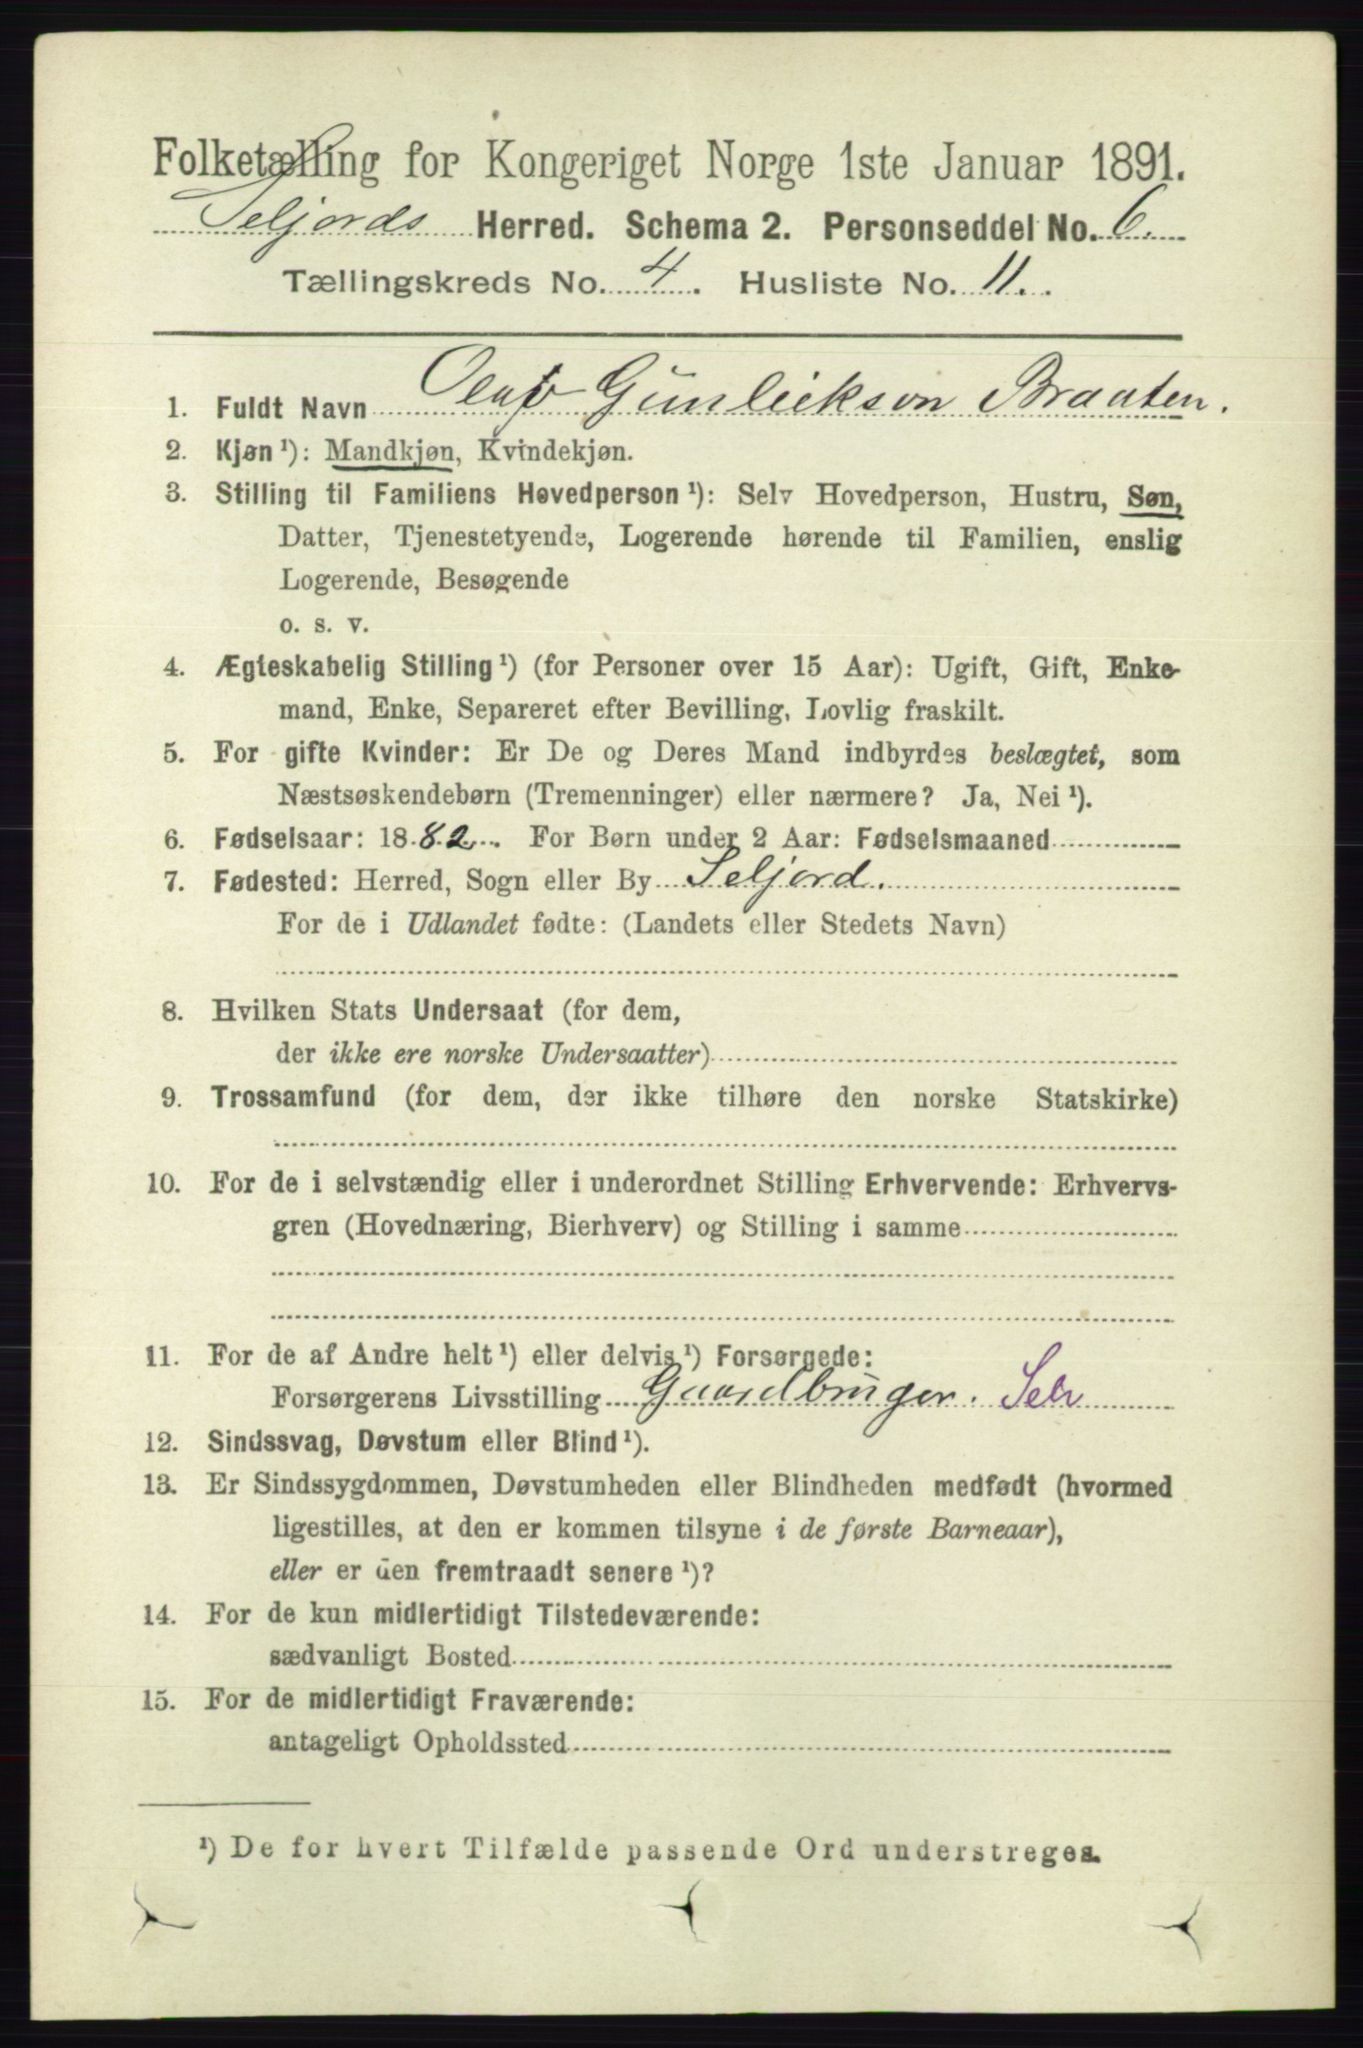 Folketælling for Kongeriget Norge 1ste Januar 1891.
Seljords Herred. Schema 2. Personseddel No. 6.
Tællingskreds No. 4. Husliste No. 11.
1. Fuldt Navn Olaf Gunleikson Braaten.
2. Kjøn ¹): Mandkjøn, Kvindekjøn.
3. Stilling til Familiens Hovedperson ¹): Selv Hovedperson, Hustru, Søn,
Datter, Tjenestetyende, Logerende hørende til Familien, enslig
Logerende, Besøgende
o. s. v.
4. Ægteskabelig Stilling ¹) (for Personer over 15 Aar): Ugift, Gift, Enke-
mand, Enke, Separeret efter Bevilling, Lovlig fraskilt.
5. For gifte Kvinder: Er De og Deres Mand indbyrdes beslægtet, som
Næstsøskendebørn (Tremenninger) eller nærmere? Ja, Nei ¹).
6. Fødselsaar: 1882. For Børn under 2 Aar: Fødselsmaaned
7. Fødested: Herred, Sogn eller By Seljord.
For de i Udlandet fødte: (Landets eller Stedets Navn)
8. Hvilken Stats Undersaat (for dem,
der ikke ere norske Undersaatter)
9. Trossamfund (for dem, der ikke tilhøre den norske Statskirke)
10. For de i selvstændig eller i underordnet Stilling Erhvervende: Erhvervs-
gren (Hovednæring, Bierhverv) og Stilling i samme
11. For de af Andre helt ¹) eller delvis ¹) Forsørgede:
Forsørgerens Livsstilling Gaardbruger. Selv
12. Sindssvag, Døvstum eller Blind ¹).
13. Er Sindssygdommen, Døvstumheden eller Blindheden medfødt (hvormed
ligestilles, at den er kommen tilsyne i de første Barneaar),
eller er den fremtraadt senere ¹)?
14. For de kun midlertidigt Tilstedeværende:
sædvanligt Bosted
15. For de midlertidigt Fraværende:
antageligt Opholdssted
¹) De for hvert Tilfælde passende Ord understreges.